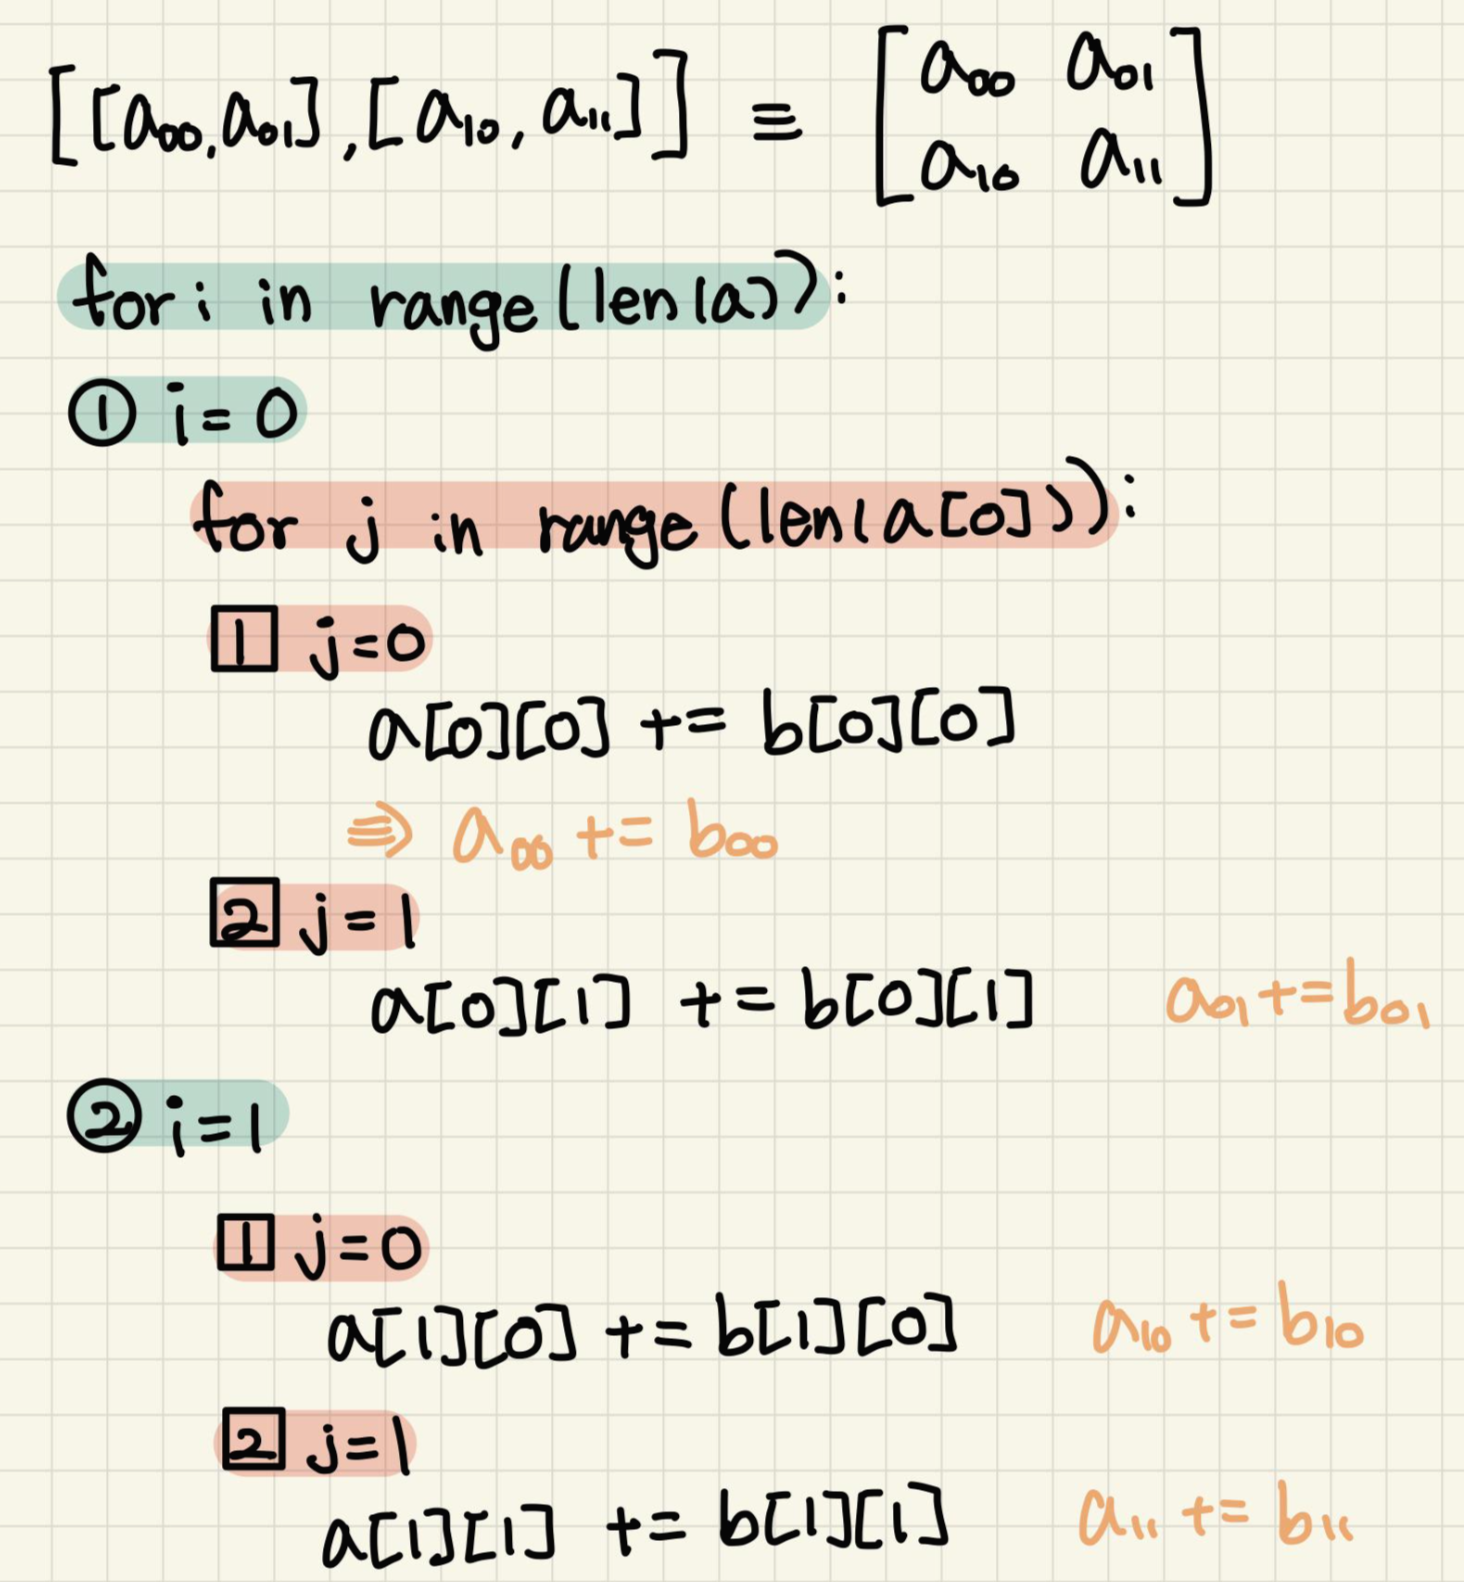 [[a₀₀,a₀₁],[a₁₀,a₁₁]] ≡ [a₀₀ a₀₁
a₁₀ a₁₁]
for i in range(len(a)):
① i=0
for j in range(len(a[0])):
1 j=0
a[0][0] += b[0][0]
⇛ a₀₀ += b₀₀
2 j=1
a[0][1] += b[0][1] a₀₁+=b₀₁
② i=1
1 j=0
a[1][0] += b[1][0] a₁₀ += b₁₀
2 j=1
a[1][1] += b[1][1] a₁₁ += b₁₁